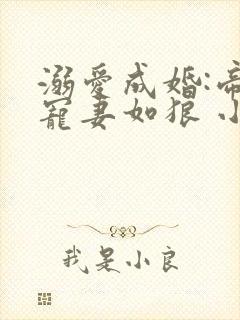 溺愛成婚:帝
寵妻如狼 小
我是小良